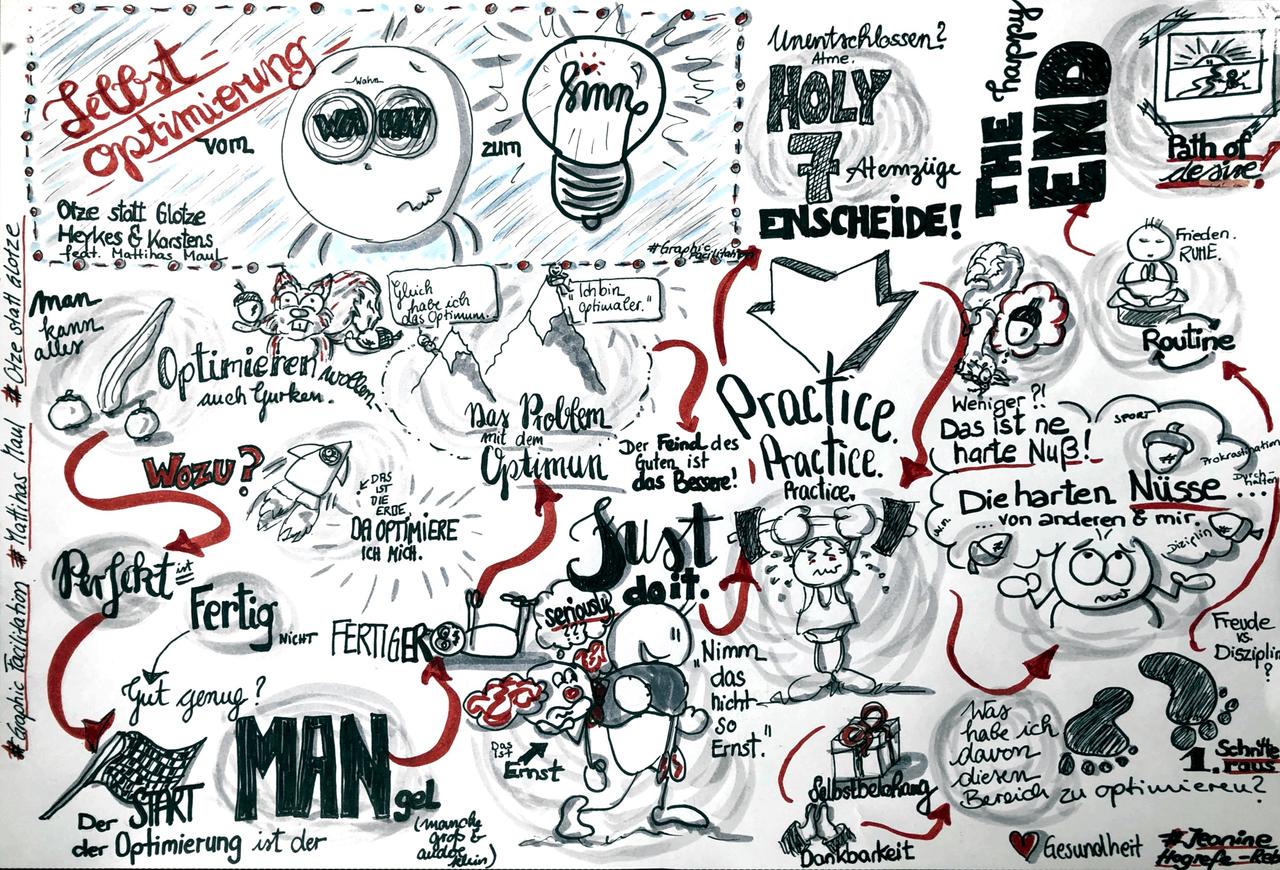 Selbst-
optimierung
vom
Wahn
WA HN
zum
Sinn
Otze statt Glotze
Heykes & Karstens
feat. Matthias Maul
#Graphic Facilitation
#Graphic Facilitation #Matthias Maul #Otze statt Glotze
man
kann
alles
Optimieren wollen
auch Gurken.
Gleich
habe ich
das Optimum.
"Ich bin
optimaler."
Das Problem
mit dem
Optimun
Der Feind des
Guten ist
das Bessere!
Wozu?
DAS
IST
DIE
ERDE.
DA OPTIMIERE
ICH MICH.
Perfekt ist
Fertig
NICHT FERTIGER
Gut genug?
Der START
der Optimierung ist der
MANgel
(manche
groß &
andere
klein)
Just
do it.
seriously
???
Das
ist
Ernst
"Nimm
das
nicht
so
Ernst."
Unentschlossen?
Atme.
HOLY
7 Atemzüge
ENSCHEIDE!
Practice.
Practice.
Practice.
THE
END
Path of
desire!
Frieden.
RUHE.
Routine
Weniger?!
Das ist ne
harte Nuß!
SPORT
Prokrastination
Die harten Nüsse ...
... von anderen & mir.
Diziplin
Freude
vs.
Disziplin
?
Was
habe ich
davon
diesen
Bereich zu optimieren?
1. Schritte
raus
Selbstbelohnung
Dankbarkeit
Gesundheit
#Jeanine
Hogrefe-